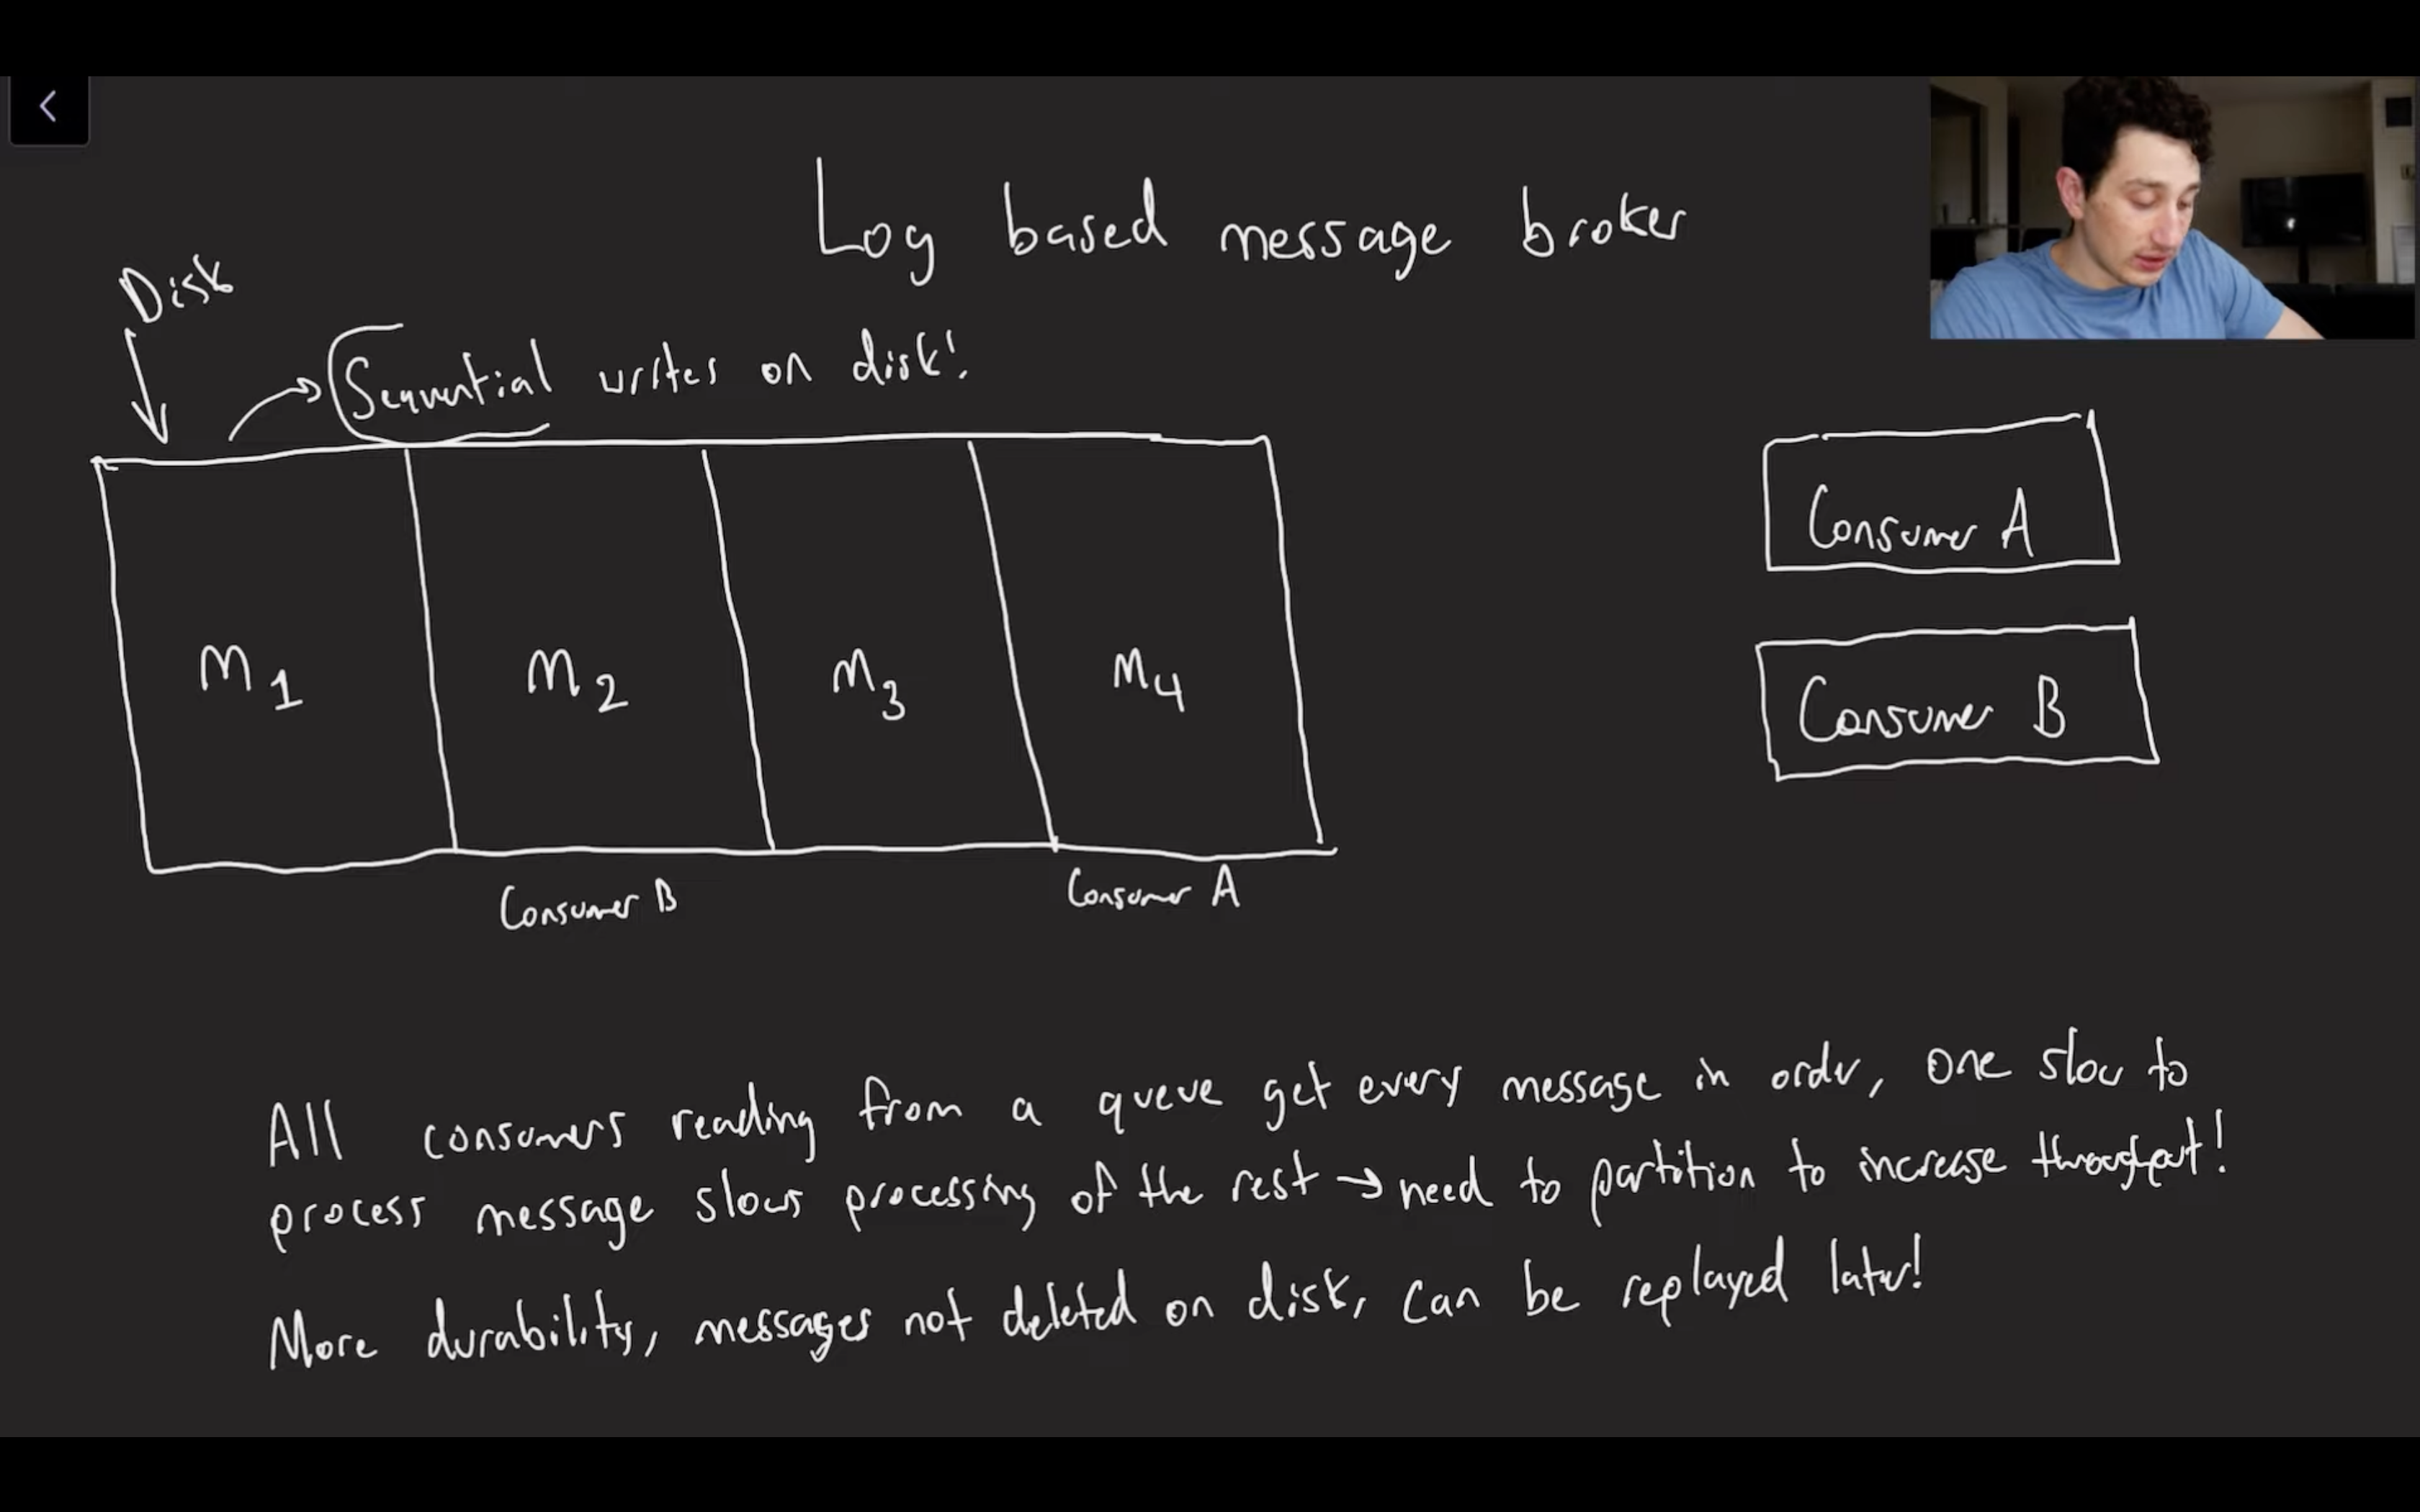 Log based message broker
Disk
Sequential writes on disk!
M1
M2
M3
M4
Consumer A
Consumer B
Consumer B
Consumer A
All consumers reading from a queue get every message in order, one slow to
process message slows processing of the rest → need to partition to increase throughput!
More durability, messages not deleted on disk, can be replayed later!